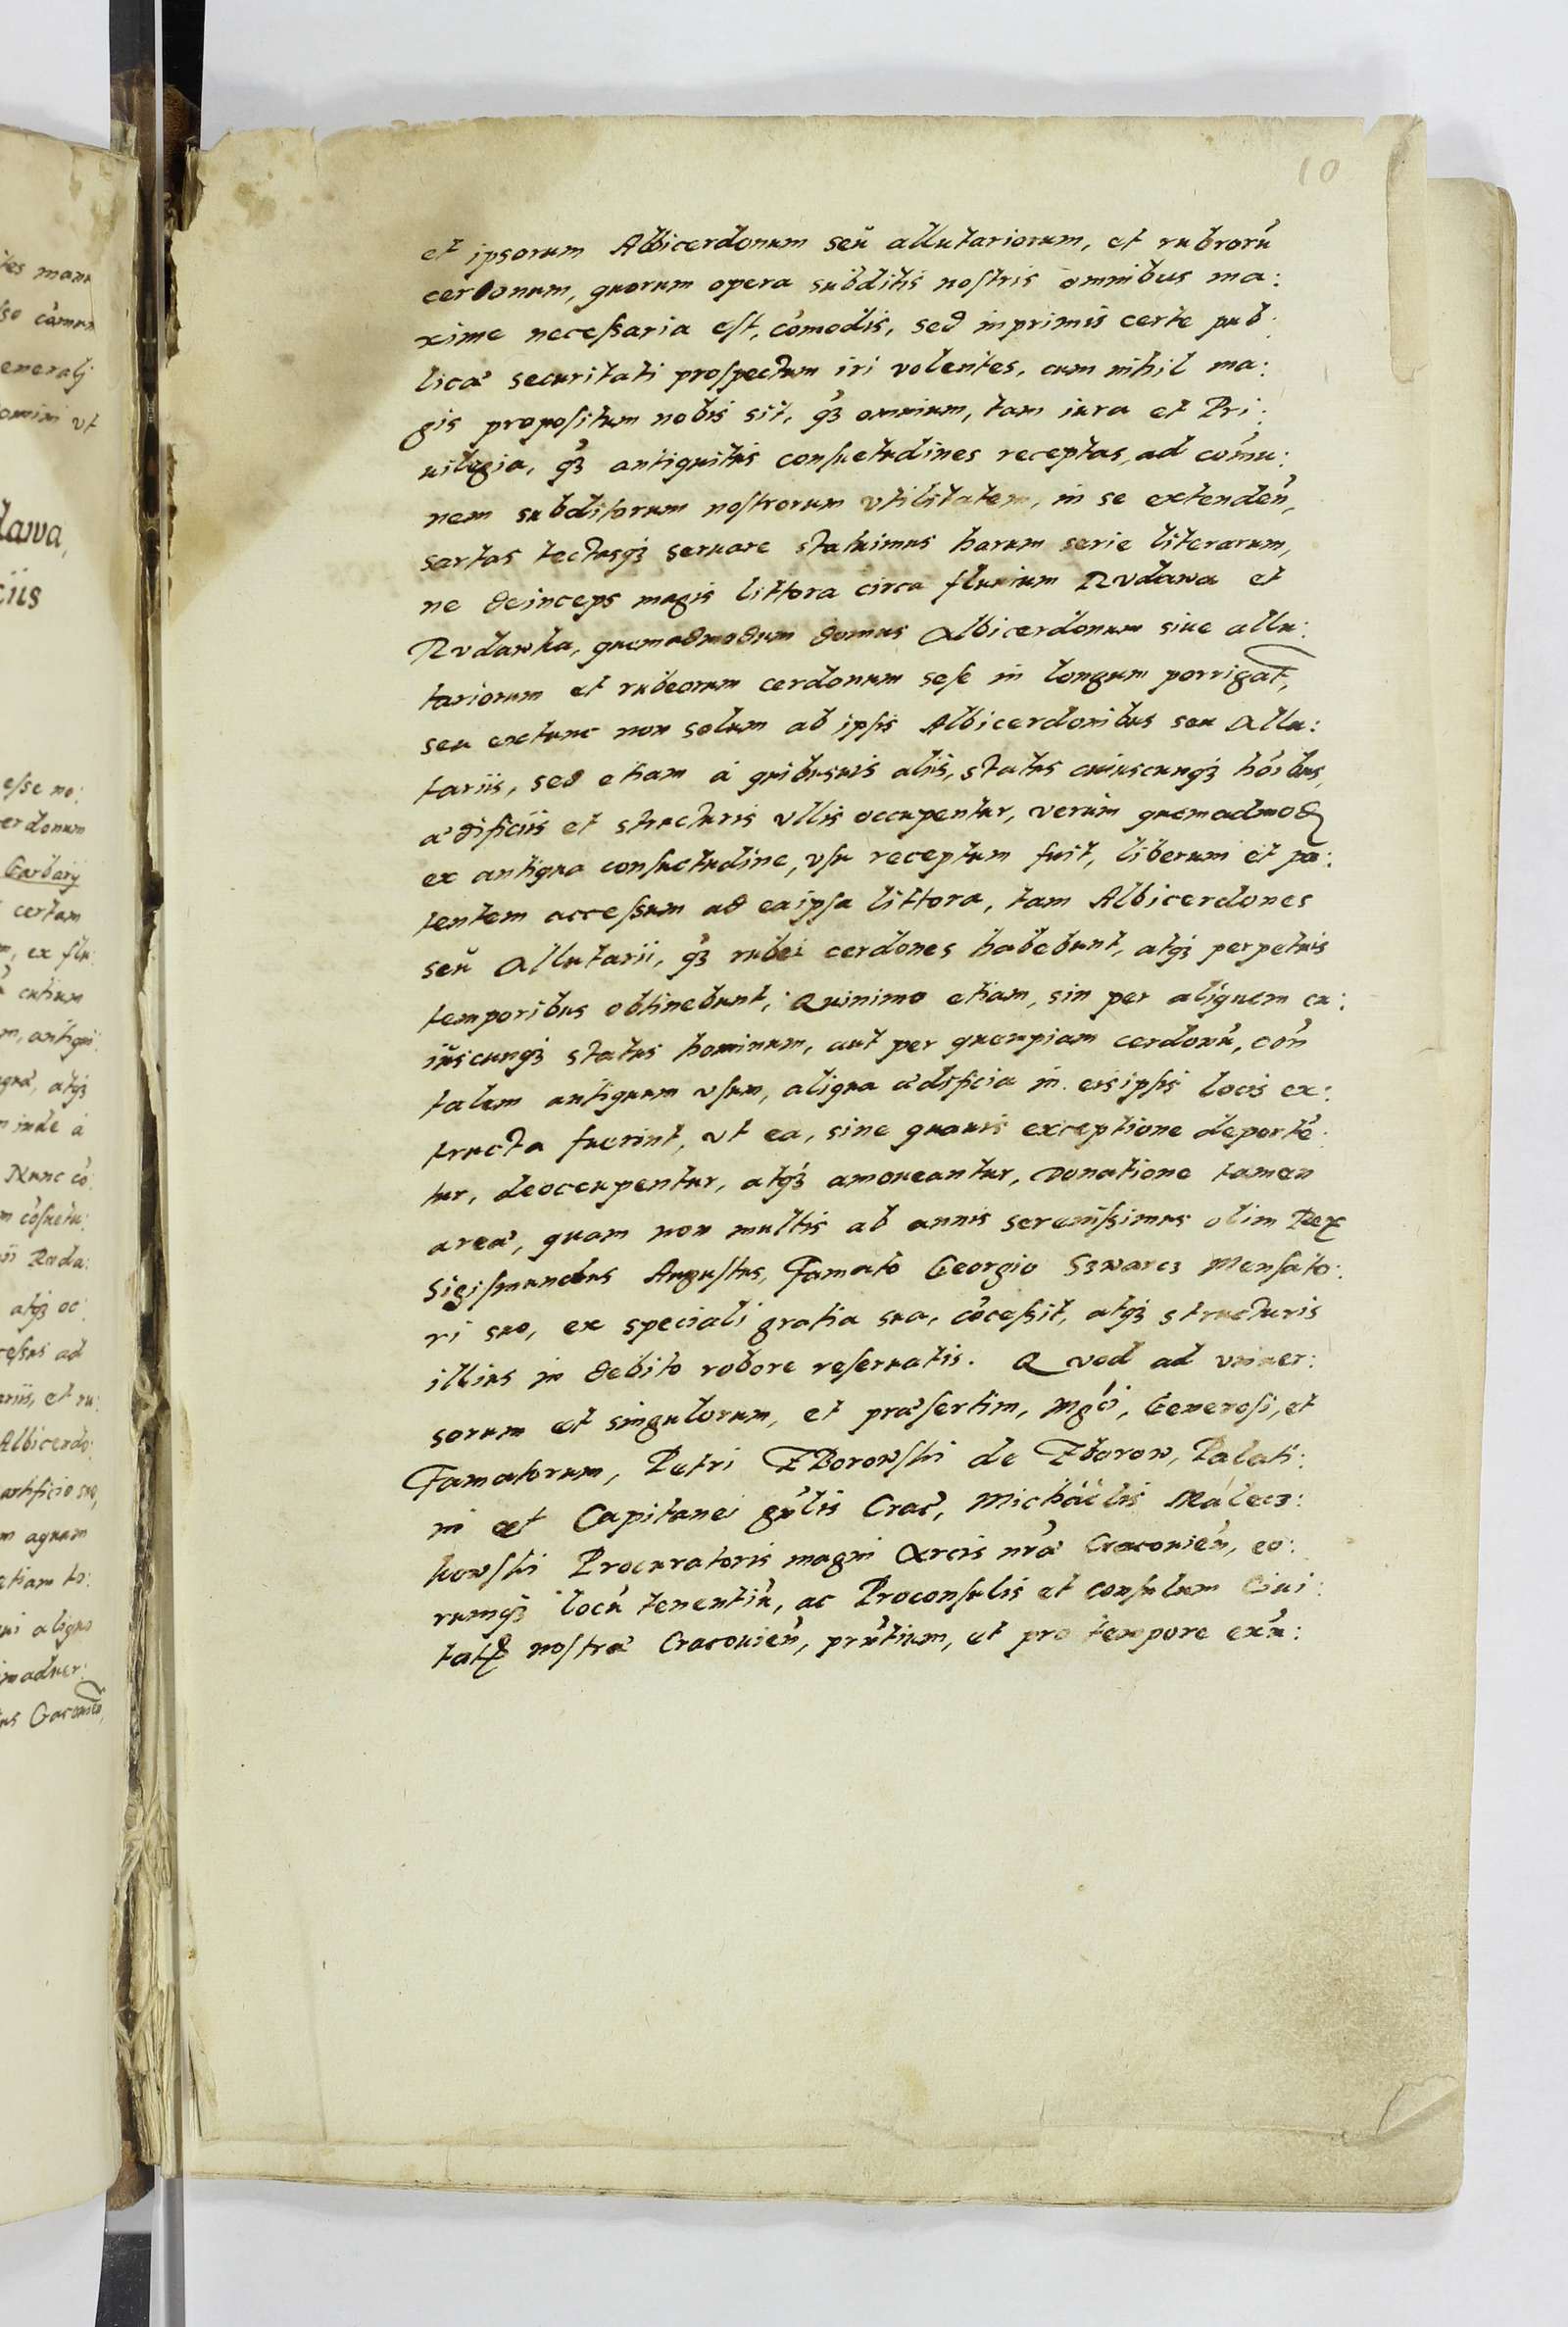 10
et ipsorum Albicerdonum seu allutariorum, et rubrorũ
cerdonum, quorum opera subditis nostris omnibus ma:
xime necessaria est, cõmodis, sed inprimis certe pub:
licæ securitati prospectum iri volentes, cum nihil ma:
gis propositum nobis sit, q̃ꝫ omnium, tam iura et Pri:
uilegia, q̃ꝫ antiquitus consuetudines receptas, ad cõmu:
nem subditorum nostrorum vtilitatem, in se extendeñ,
sartas tectasqꝫ seruare statuimus harum serie literarum,
ne deinceps magis littora circa fluuium Rvdawa et
Rvdawka, quemadmodum domus Albicerdonum siue allu:
tariorum et rubeorum cerdonum sese in longum porrigat̃,
seu extunc non solum ab ipsis Albicerdonibus seu Allu:
tariis, sed etiam á quibusuis aliis, status cuiuscunqꝫ hõibus,
ædificiis et structuris vllis occupentur, verum quemadmod
ex antiqua consuetudine, vsu receptum fuit, liberum et pa:
tentem accessum ad eaipsa littora, tam Albicerdones
seũ Allutarii, q̃ꝫ rubei cerdones habebunt, atqꝫ perpetuis
temporibus obtinebunt, Quinimo etiam, sin per aliquem cu:
iũscunqꝫ status hominum, aut per quempiam cerdonũ, coñ
talem antiquum vsum, aliqua ædificia in eisipsis locis ex:
tructa fuerint, vt ea, sine quauis exceptione deportẽ:
tur, deoccupentur, atqꝫ amoueantur, Donatione tamen
areæ, quam non multis ab annis serenissimus olim Rex
Sigismundus Augustus, Famato Georgio Szwarcz Mensato:
ri suo, ex speciali gratia sua, cõcessit, atqꝫ structuris
illius in debito robore reseruatis. Qvod ad vniuer:
sorum et singulorum, et præsertim, Mg̃ci, Generosi, et
Famatorum, Petri Zborowski de Zborow, Palati:
ni et Capitanei gñlis Crac̃, Michaëlis Malecz:
kowski Procuratoris magni Arcis nr̃æ Cracouieñ, eo:
rumqꝫ locũ tenentiũ, ac Proconsulis et consulum Ciui:
tatꝭ nostræ Cracouieñ, prñtium, et pro tempore exñ: